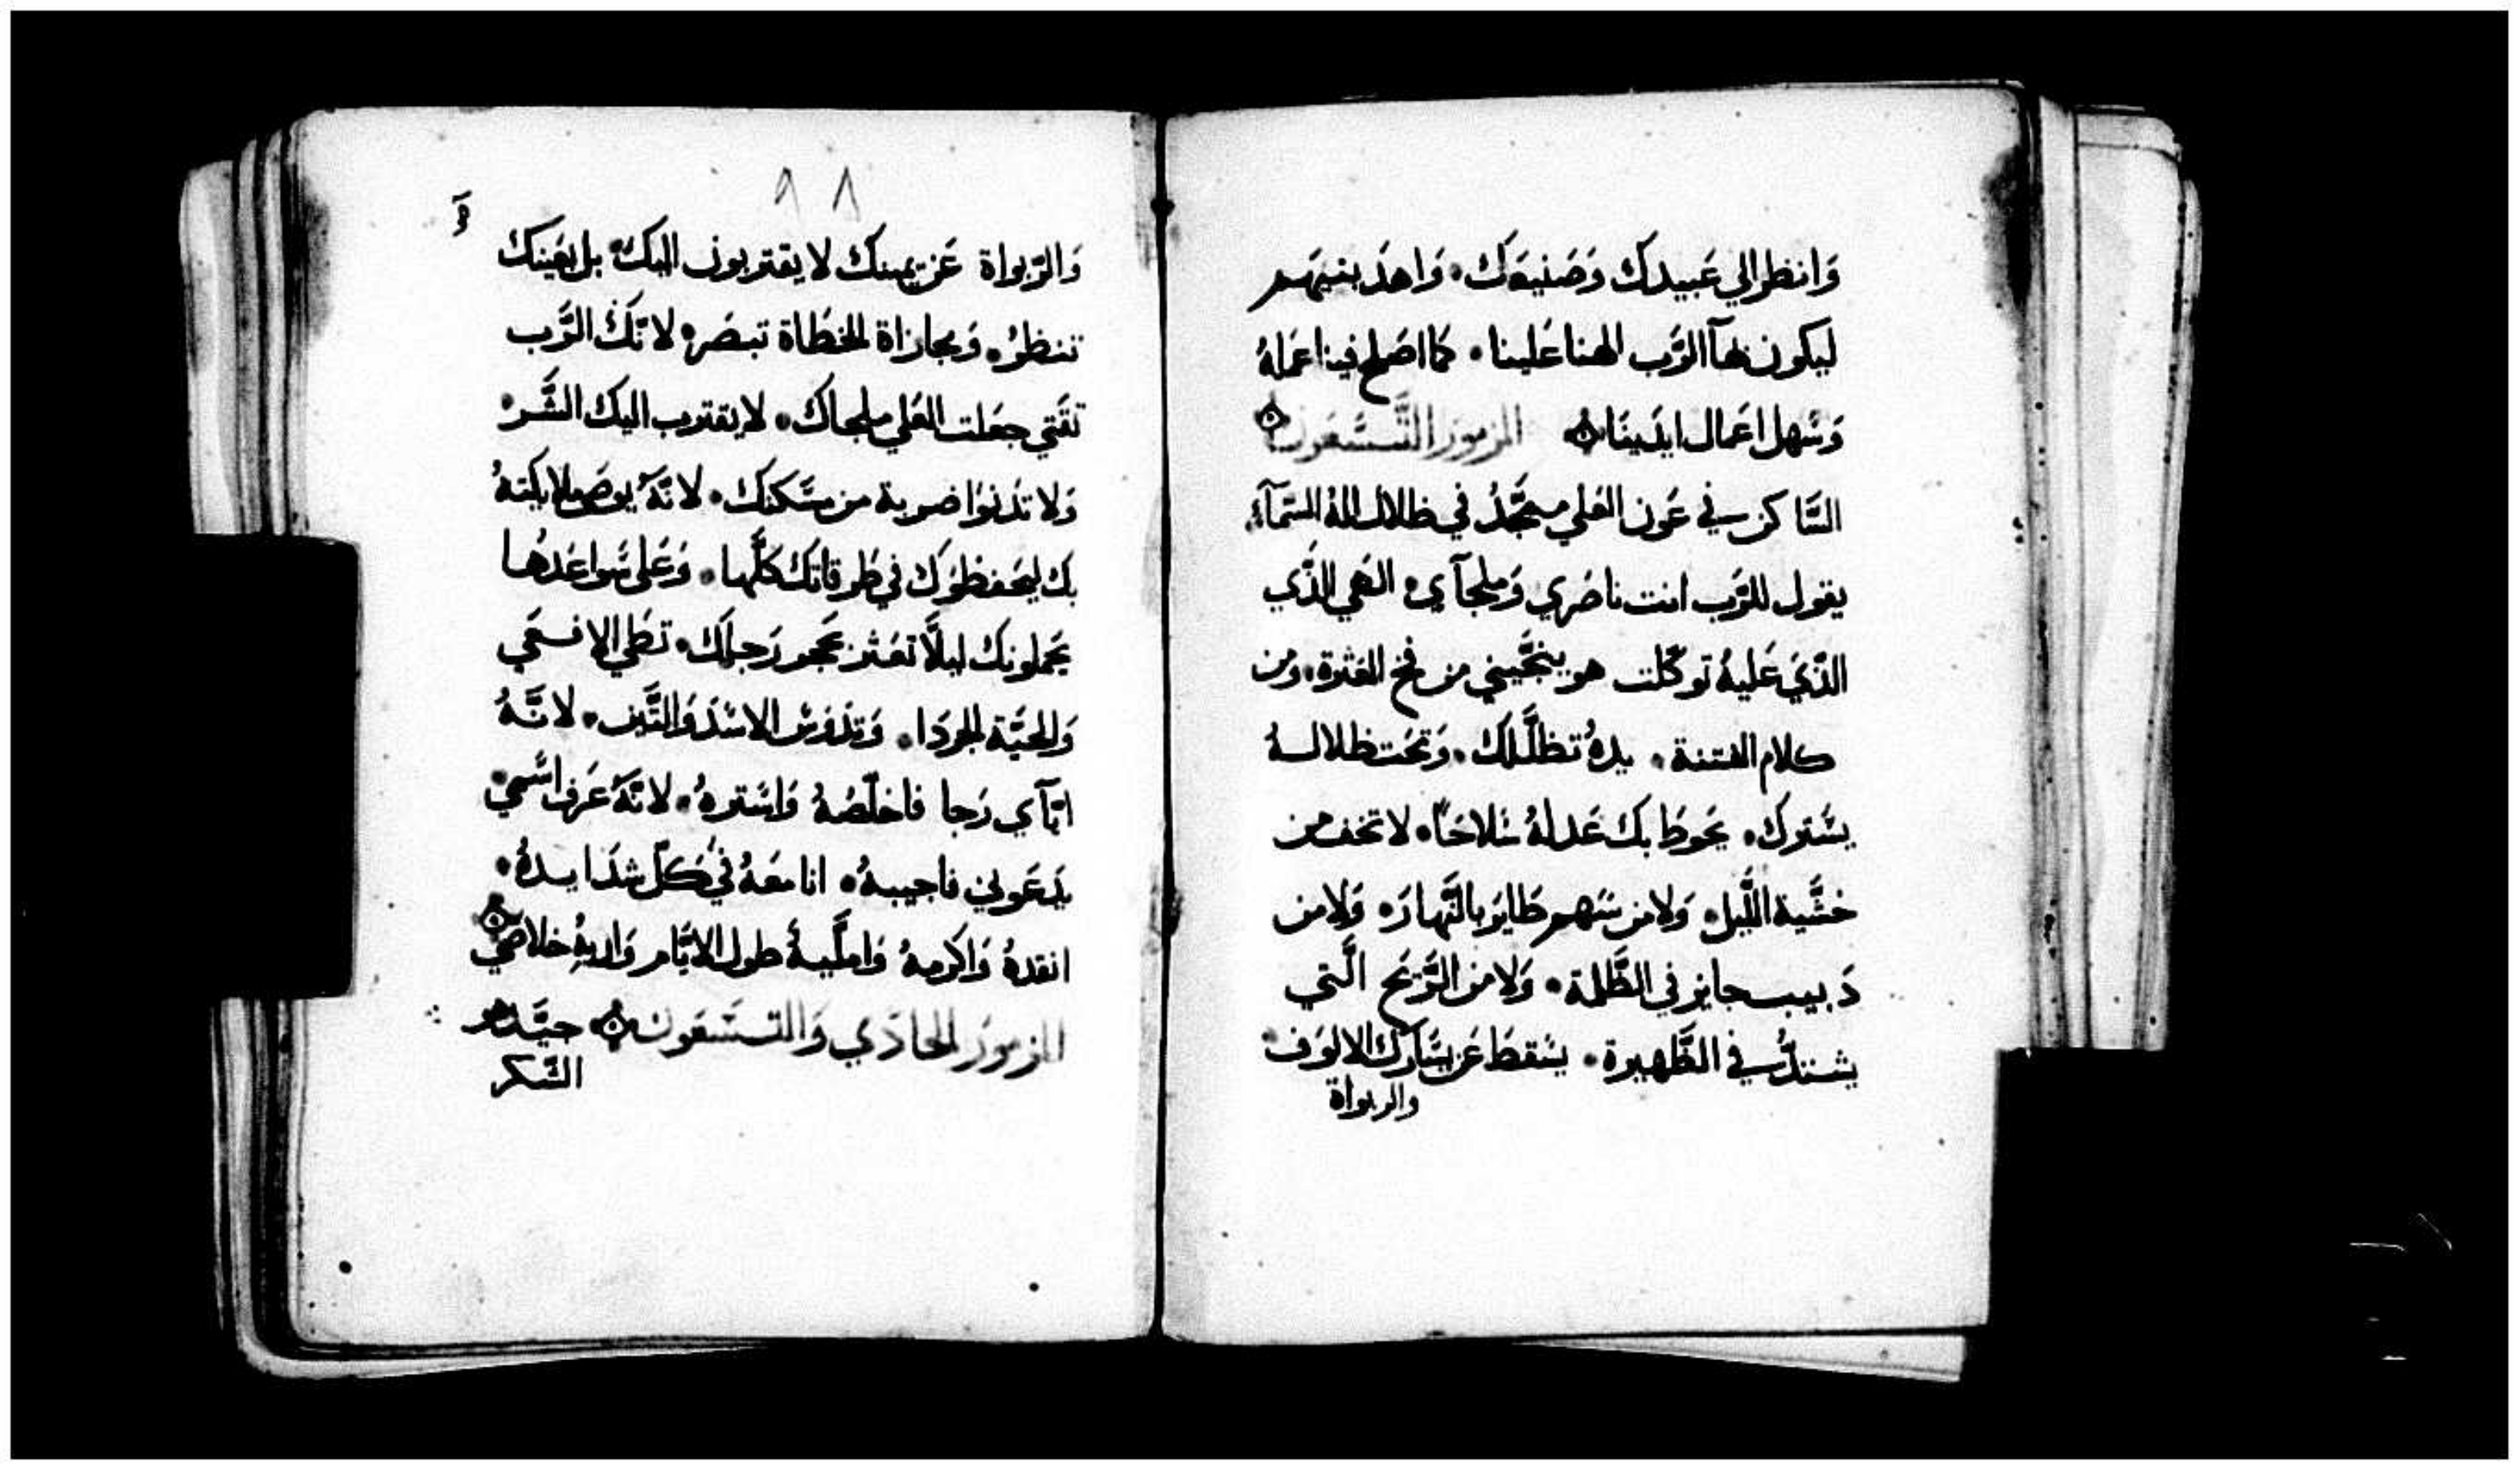 وَانظر الي عَبيدك وَصَنيعَك۰ وَاهدَ بنيهَم
ليكون بهآ الرَّب الهنا عَلينا۰ كما اصَلح فينا اعمَالهُ
وَسَهل اعَمال ايدَينَا المزمور التَّسَعَون
السَّاكن في عَون العَلي مجَّدُ في ظلال الهُ السَّمآء
يقول للرَّب انت ناصَري وَملجآي۰ الهَي الذَّي
الذَّيَ عَليهُ توكّلت هو ينجَّيني من فخ العَثرة۰ ومن
كلام الفتنة۰ يدهُ تظلَّلك۰ وَتحَت ظلالهُ
يسَترك۰ يحَوط بك عَدلهُ سَلاحَاً۰ لا تخف من
خشَّية اللَّيل۰ وَلا من سَهم طَاير بالنَّهارَ۰ وَلا من
دَبيب جايز في الظَّلمة۰ وَلا من الرَّيَح الَّتي
يشتدُّ في الظَّهيرة۰ يسَقط عَن يسَارك الالوَف
والربواة
٩٨
وَالرّبواة عَن يمينك لا يقتربون اليك۰ بل بعَينك
تنظرُ۰ وَمجازاة الخطَاة تبصَر۰ لانَّكَ الرَّب
ثقَتي جعَلت العَلي ملجاك۰ لا يقترب اليك الشَّر
وَلا تدَنوا ضربة من مسَكنك۰ لانَّهُ يوصَي ملايكتهُ
بك ليحَفظوَك في طَرقاتك كلَّها۰ وَعَلى سَواعَدهُا
يحَملونك ليلَّا تعَثر بحَجر رَجلك۰ تطَي الافعَي
وَالحيَّة الجردَا۰ وَتدَوَس الاسَدَ وَالتَّنين۰ لانَّهُ
ايَّآي رَجا فاخلّصهُ وَاسَترهُ۰ لانَّهُ عَرف اسَّمي۰
يدَعَوني فاجيبهُ۰ انا معَهُ في كلّ شدَايدهُ۰
انقدهُ وَاكرمهُ وَاملَّيهُ طول الايَّام وَاريهُ خلاصَي
المزمورَ الحادَي وَالتسَعَون جيَّد هو
الشَّكر